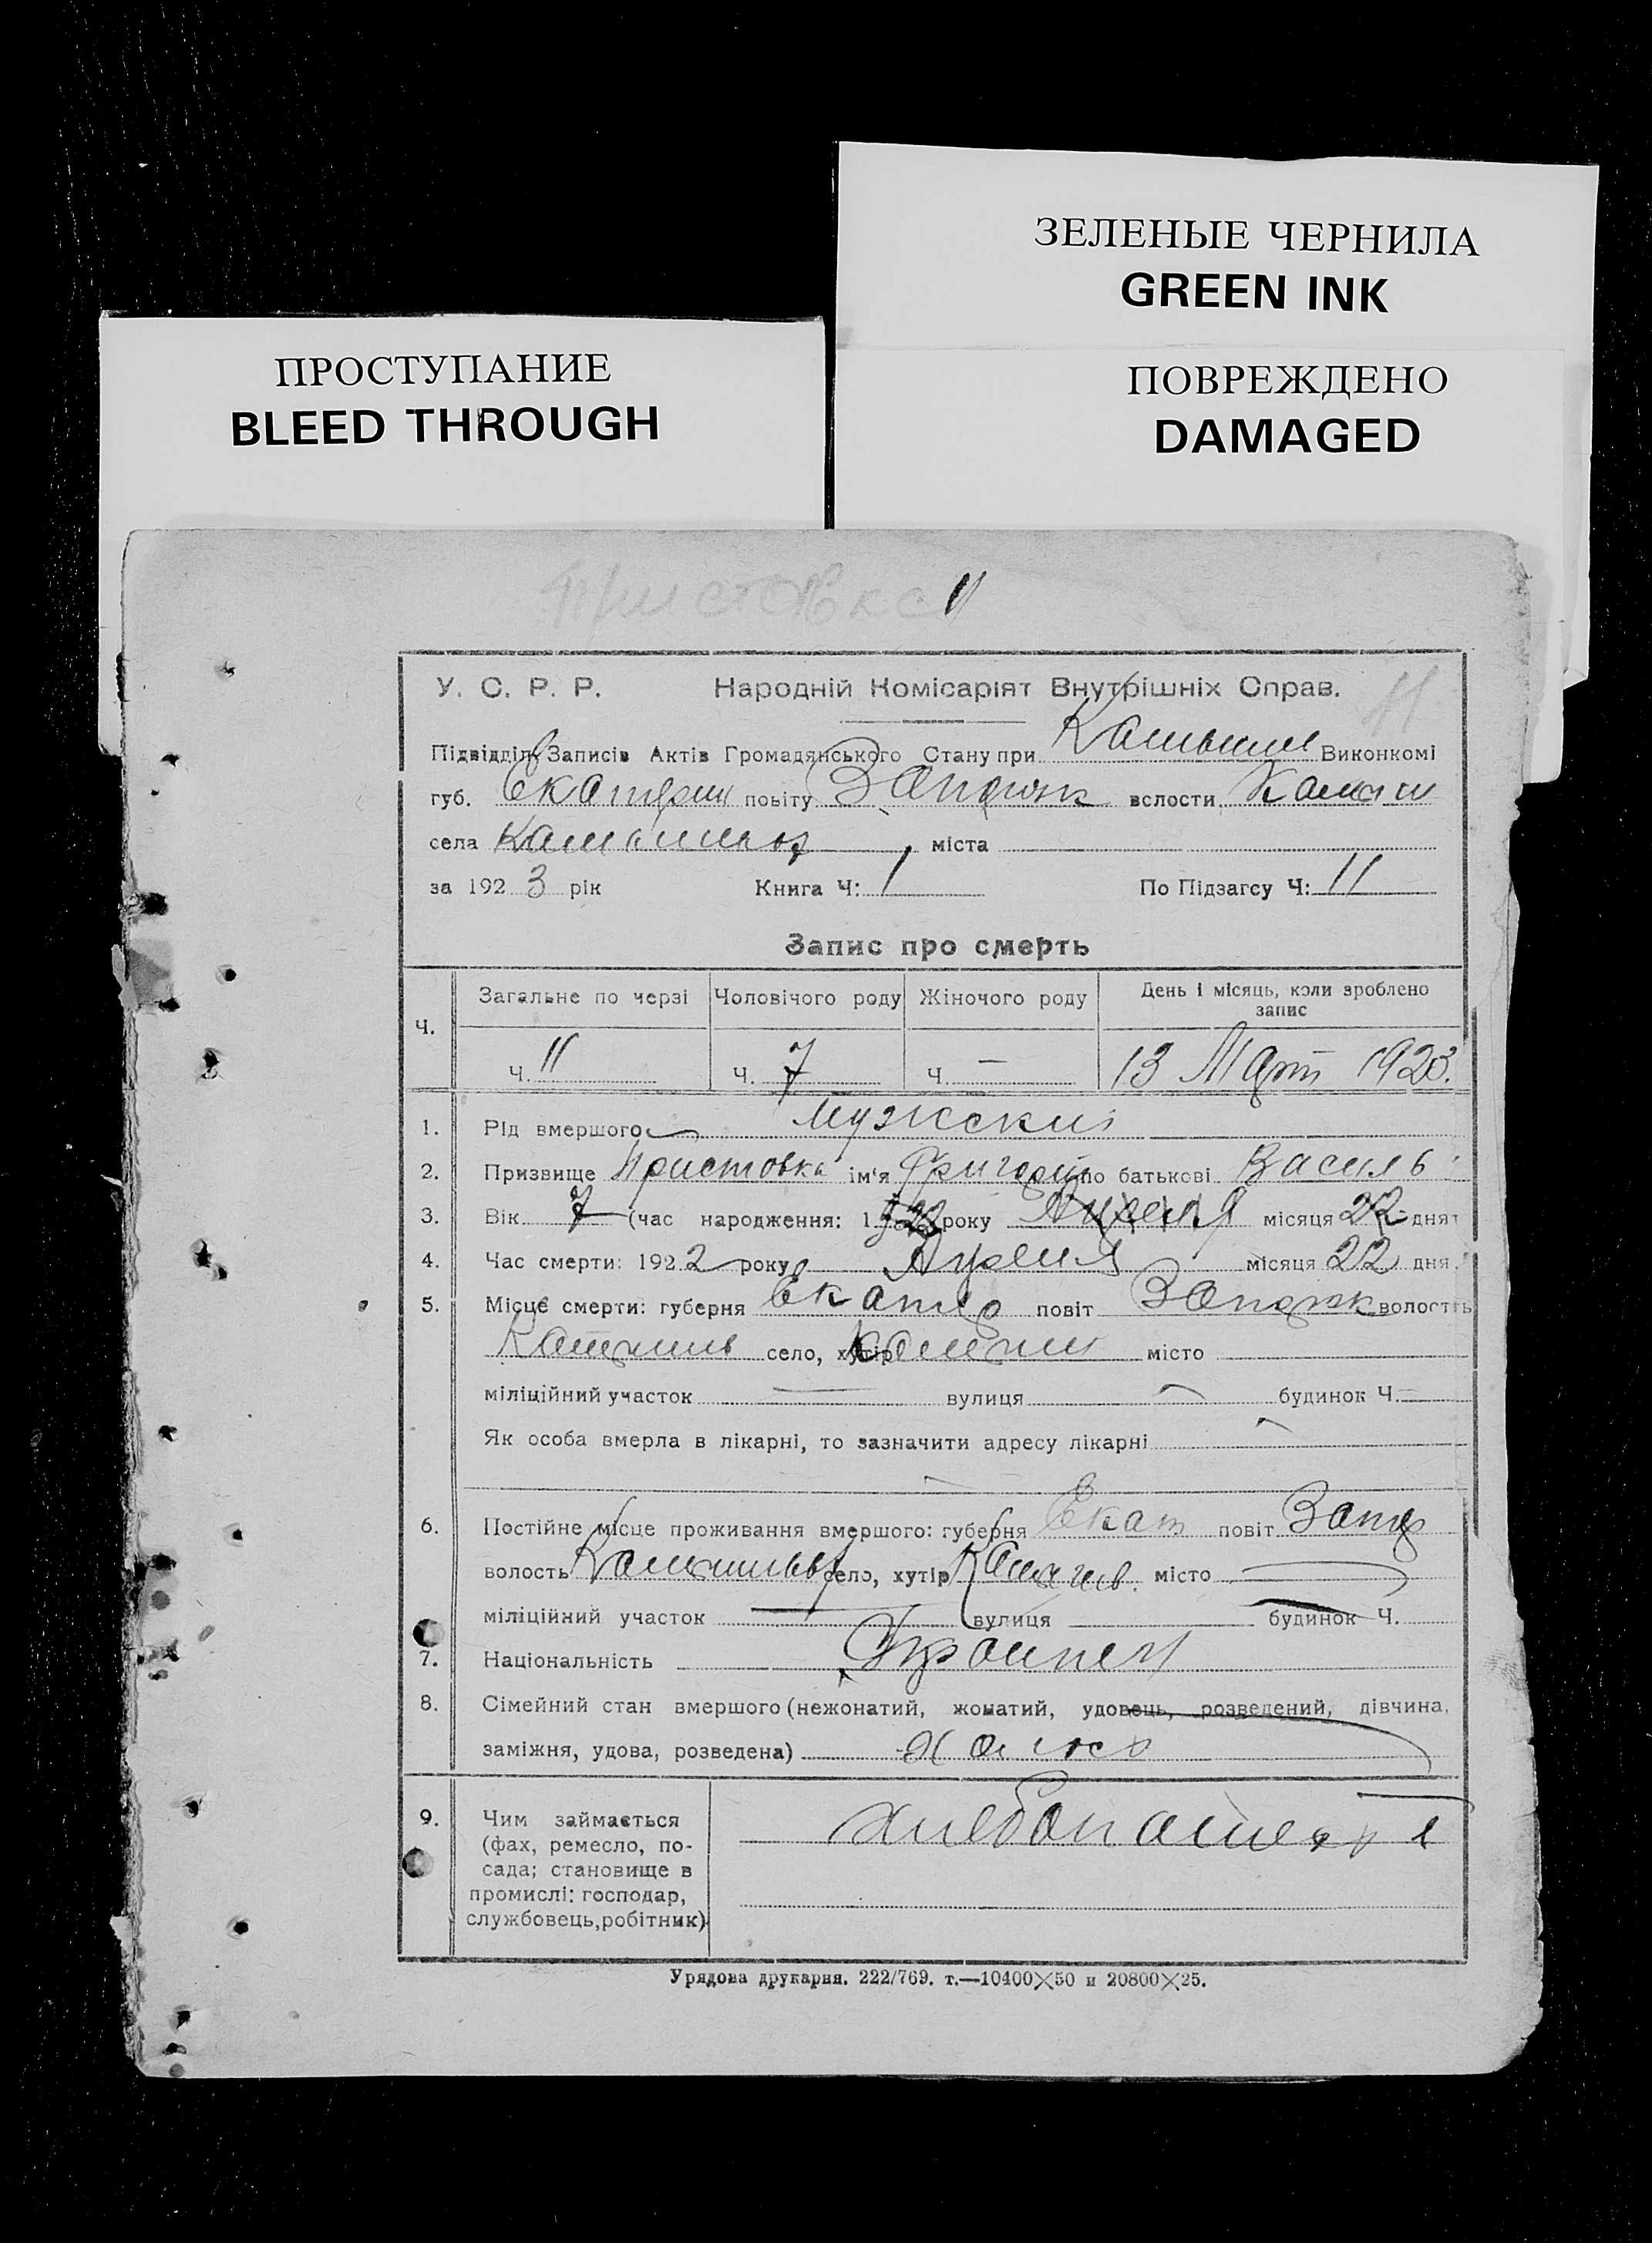 ЗЕЛЕНЫЕ ЧЕРНИЛА
GREEN INK
ПРОСТУПАНИЕ
BLEED THROUGH
ПОВРЕЖДЕНО
DAMAGED
Пристовка 11
У. С. Р. Р. Народній Комісаріят Внутрішніх Справ. 11
Підвідділ Записів Актів Громадянського Стану при Виконкомі
губ. Екатерин повіту Запорож вслости
села міста
за 1923 рік Книга Ч: 1 По Підзагсу Ч: 11
Запис про смерть
Ч. Загальне по черзі Чоловічого роду Жіночого роду День і місяць, коли зроблено запис
Ч. 11 Ч. 7 Ч. — 13 Март 1923.
1. Рід вмершого Мужский
2. Призвище Пристовка ім'я Григорий по батькові Василь
3. Вік 7 (час народження: 1 року Апреля місяця 22 дня
4. Час смерти: 1922 року Апреля місяця 22 дня
5. Місце смерти: губерня Екатер повіт Запорож волость
село, хутір місто
міліційний участок — вулиця — будинок Ч. —
Як особа вмерла в лікарні, то зазначити адресу лікарні —
6. Постійне місце проживання вмершого: губерня Екат повіт Запор
волость село, хутір місто —
міліційний участок — вулиця будинок Ч.
7. Національність
8. Сімейний стан вмершого (нежонатий, жонатий, удовець, розведений, дівчина,
заміжня, удова, розведена)
9. Чим займається
(фах, ремесло, по-
сада; становище в
промислі: господар,
службовець, робітник)
Урядова друкарня. 222/769. т.—10400×50 и 20800×25.